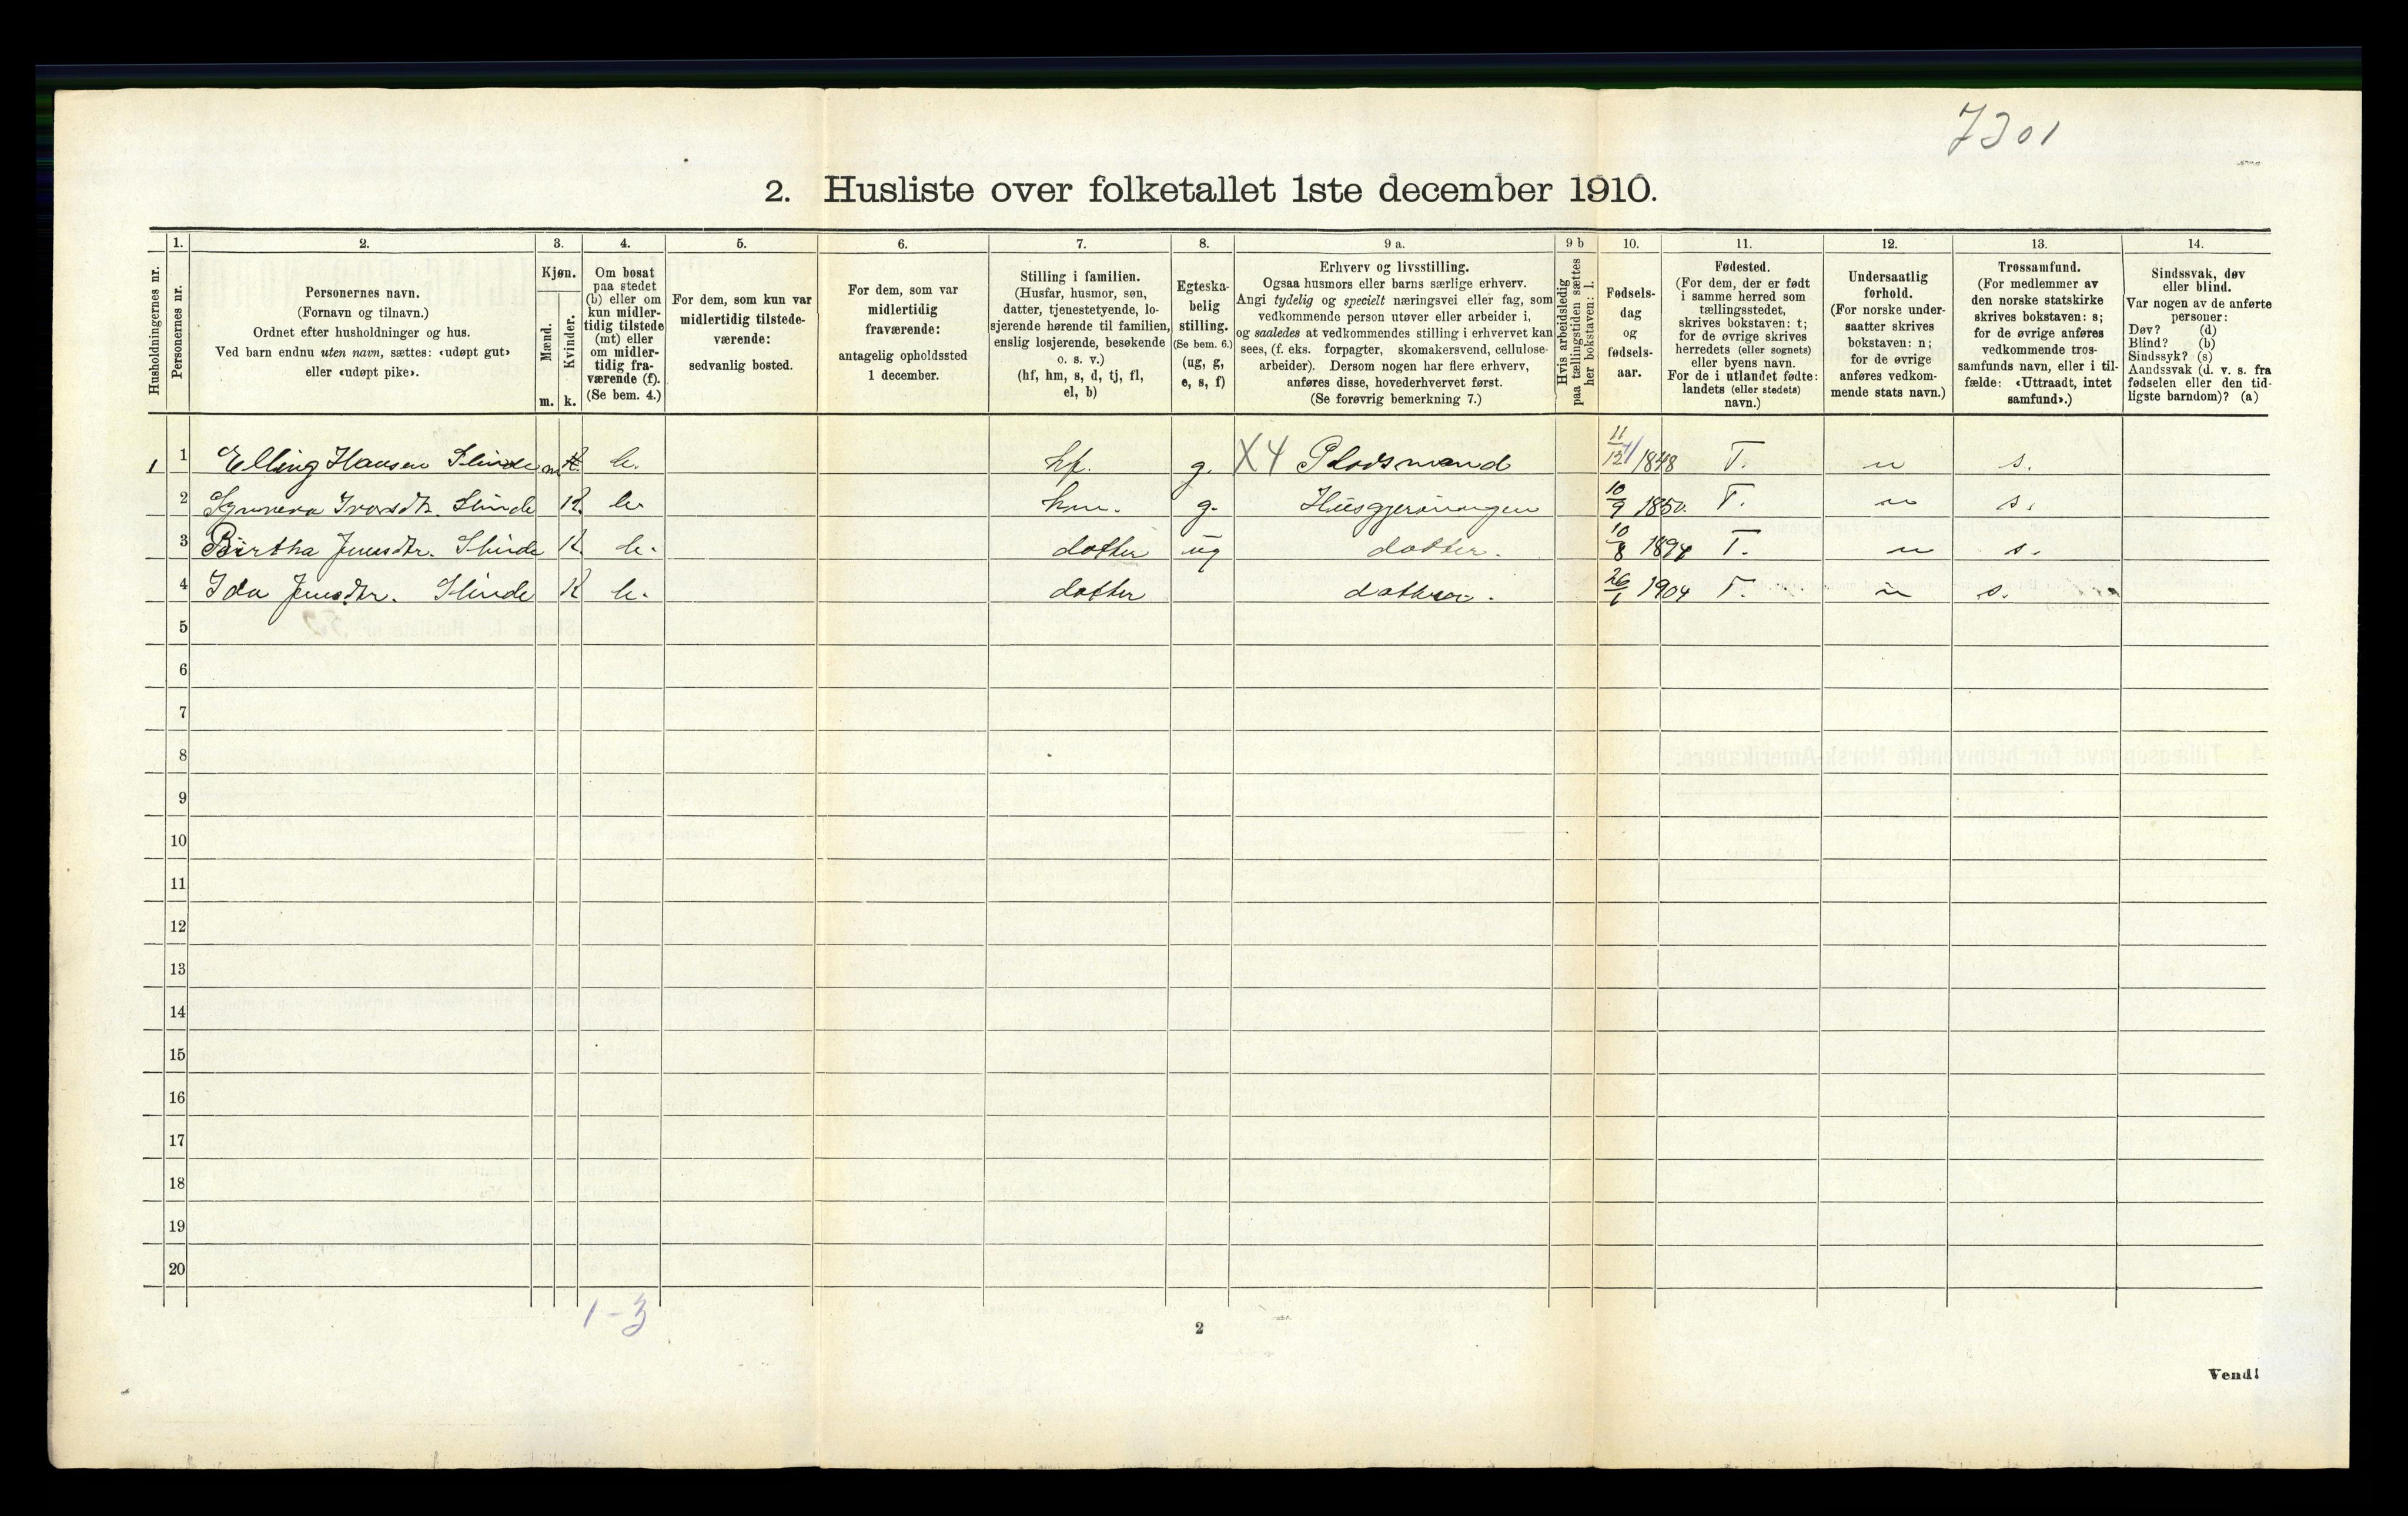 7301
2. Husliste over folketallet 1ste december 1910.
1. 2. 3. 4. 5. 6. 7. 8. 9 a. 9 b 10. 11. 12. 13. 14.
Husholdningernes nr.
Personernes nr.
Personernes navn.
(Fornavn og tilnavn.)
Ordnet efter husholdninger og hus.
Ved barn endnu uten navn, sættes: «udøpt gut»
eller «udøpt pike».
Kjøn.
Mænd.
Kvinder.
m. k.
Om bosat
paa stedet
(b) eller om
kun midler-
tidig tilstede
(mt) eller
om midler-
tidig fra-
værende (f).
(Se bem. 4.)
For dem, som kun var
midlertidig tilstede-
værende:
sedvanlig bosted.
For dem, som var
midlertidig
fraværende:
antagelig opholdssted
1 december.
Stilling i familien.
(Husfar, husmor, søn,
datter, tjenestetyende, lo-
sjerende hørende til familien,
enslig losjerende, besøkende
o. s. v.)
(hf, hm, s, d, tj, fl,
el, b)
Egteska-
belig
stilling.
(Se bem. 6.)
(ug, g,
e, s, f)
Erhverv og livsstilling.
Ogsaa husmors eller barns særlige erhverv.
Angi tydelig og specielt næringsvei eller fag, som
vedkommende person utøver eller arbeider i,
og saaledes at vedkommendes stilling i erhvervet kan
sees, (f. eks. forpagter, skomakersvend, cellulose-
arbeider). Dersom nogen har flere erhverv,
anføres disse, hovederhvervet først.
(Se forøvrig bemerkning 7.)
Hvis arbeidsledig
paa tællingstiden sættes
her bokstaven: l.
Fødsels-
dag
og
fødsels-
aar.
Fødested.
(For dem, der er født
i samme herred som
tællingsstedet,
skrives bokstaven: t;
for de øvrige skrives
herredets (eller sognets)
eller byens navn.
For de i utlandet fødte:
landets (eller stedets)
navn.)
Undersaatlig
forhold.
(For norske under-
saatter skrives
bokstaven: n;
for de øvrige
anføres vedkom-
mende stats navn.)
Trossamfund.
(For medlemmer av
den norske statskirke
skrives bokstaven: s;
for de øvrige anføres
vedkommende tros-
samfunds navn, eller i til-
fælde: «Uttraadt, intet
samfund».)
Sindssvak, døv
eller blind.
Var nogen av de anførte
personer:
Døv? (d)
Blind? (b)
Sindssyk? (s)
Aandssvak (d. v. s. fra
fødselen eller den tid-
ligste barndom)? (a)
1 1 Elling Hansen Slinde m b. hf. g. X4 Pladsmand 11/12 1848 T. n s.
2 Ivarsdtr. Slinde K b hm. g. Husgjerningen 10/9 1850. T. n s.
3 Birtha Jensdtr. Slinde K b. dotter ug dotter. 10/8 1894 T. n s.
4 Ida Jensdtr. Slinde K b. dotter 26/1 1904 T. n s.
5
6
7
8
9
10
11
12
13
14
15
16
17
18
19
20
1-3
2
Vend!